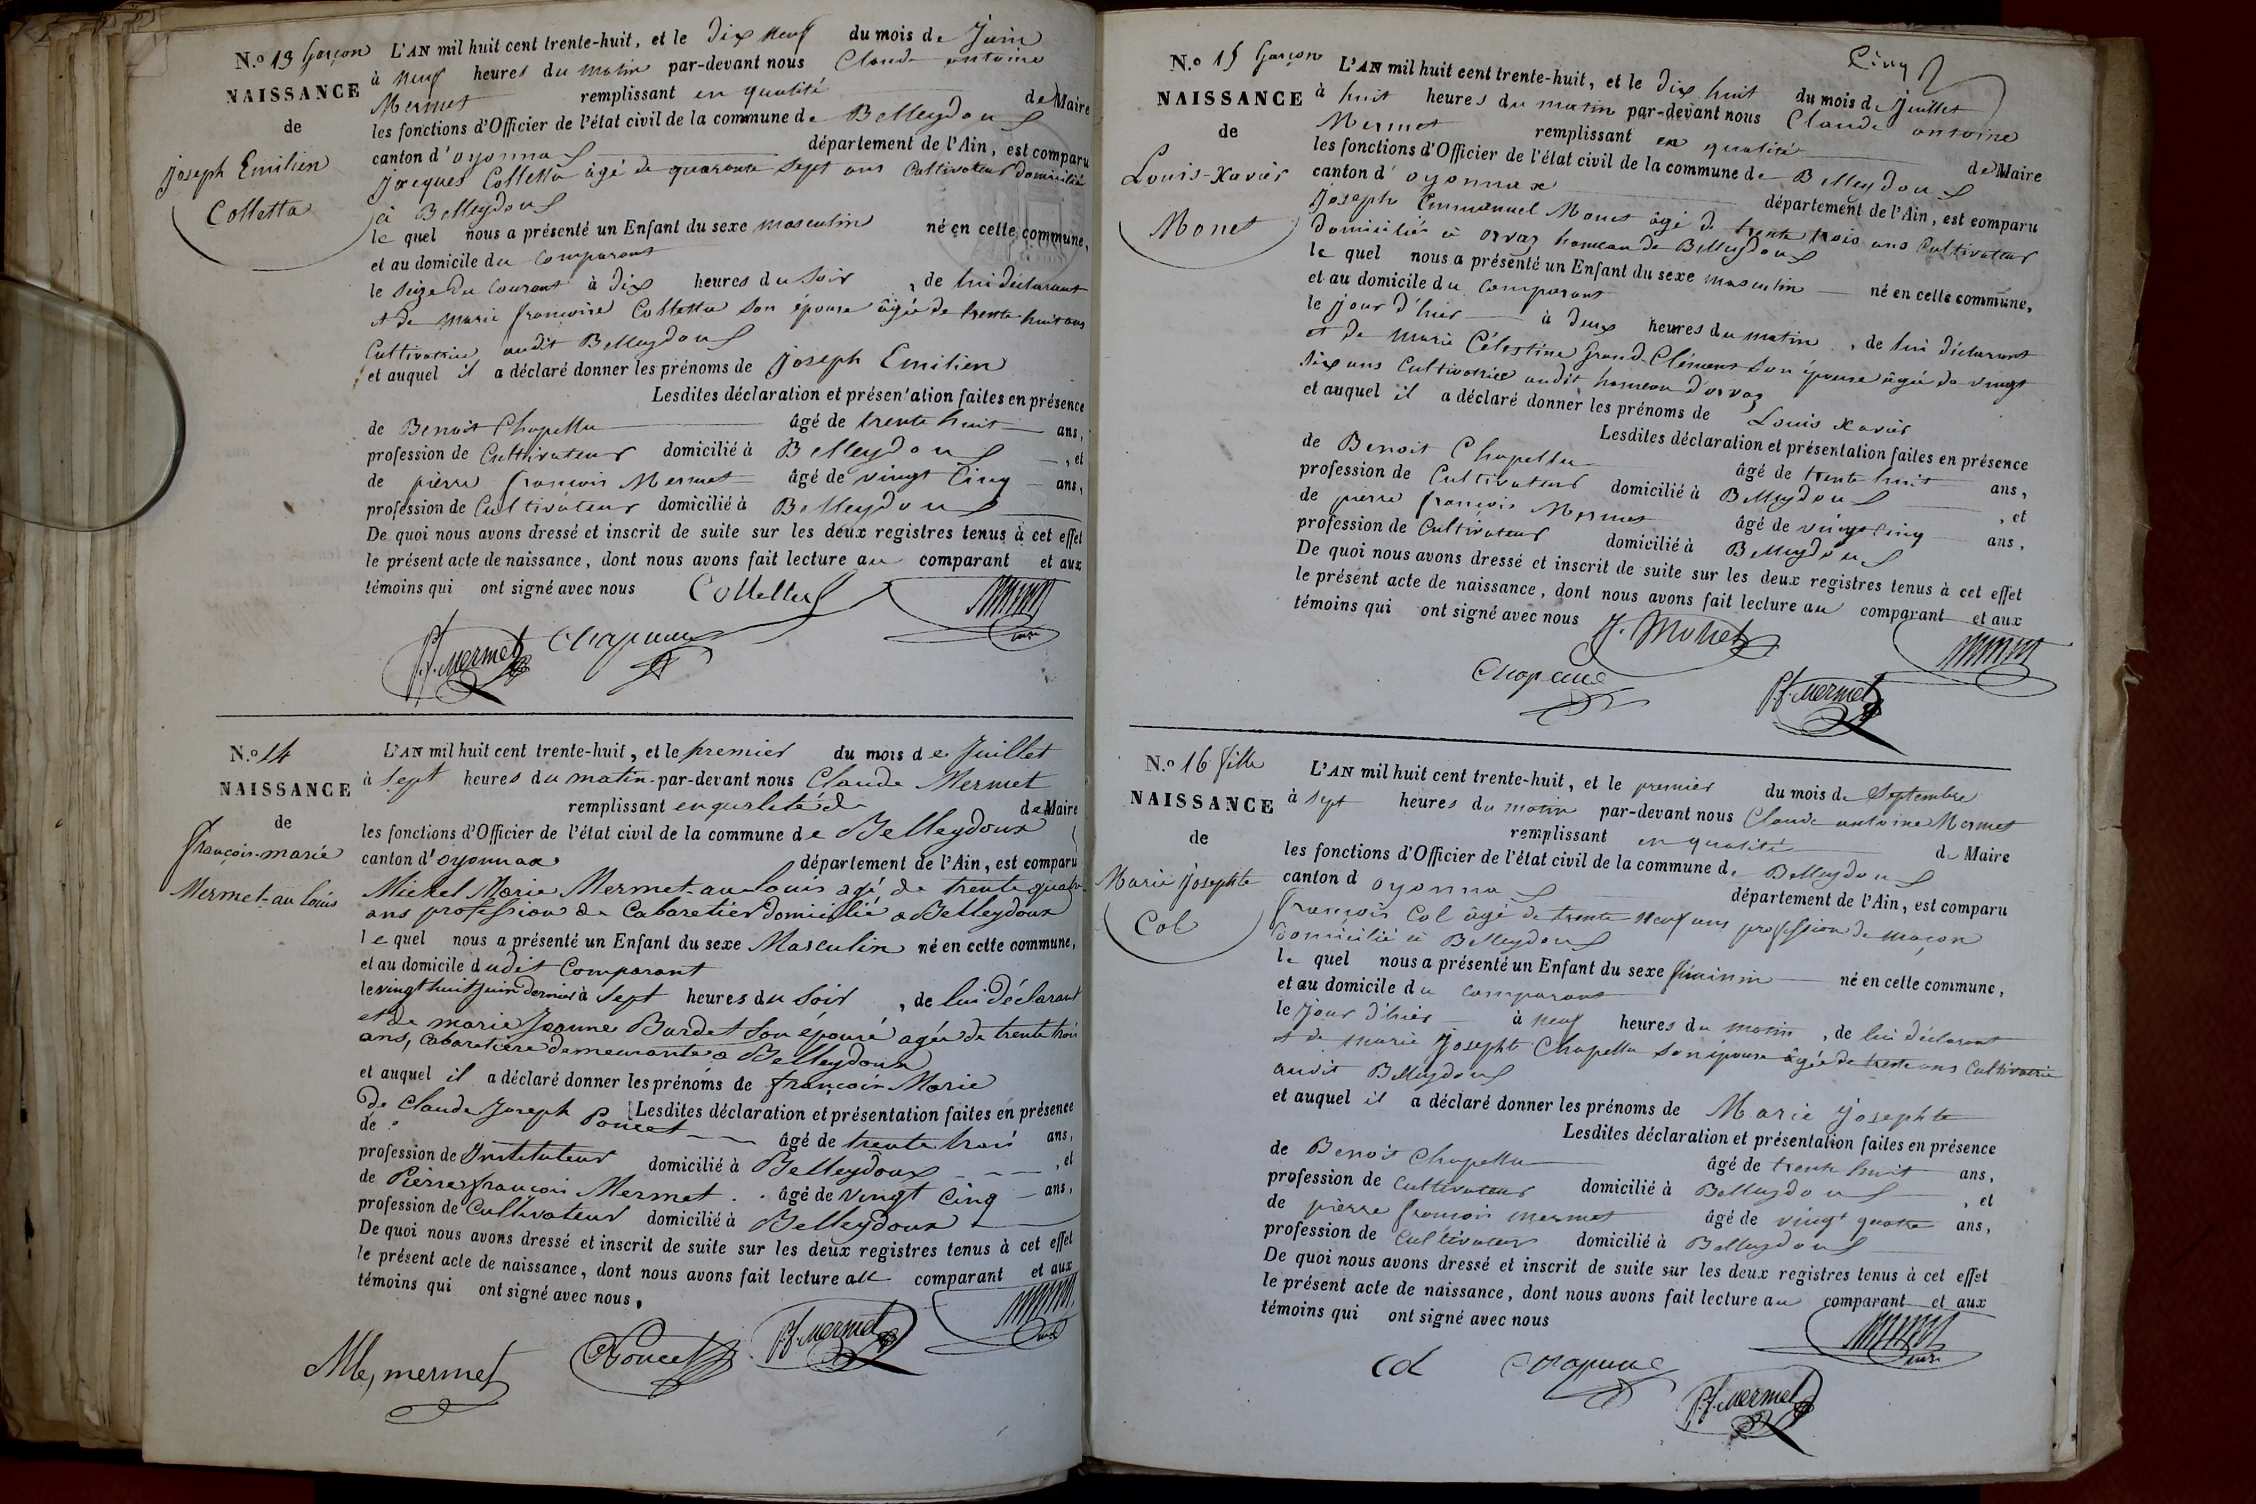 N.º 13 Garçon
NAISSANCE
de
Joseph Emilien
Colletta
L'AN mil huit cent trente-huit, et le dix neuf du mois de Juin
à neuf heures du matin par-devant nous Claude antoine
Mermet remplissant en qualité de Maire
les fonctions d'Officier de l'état civil de la commune de Belleydoux
canton d'oyonnax département de l'Ain, est comparu
Jacques Colletta âgé de quarante sept ans Cultivateur domicilié
à Belleydoux
le quel nous a présenté un Enfant du sexe masculin né en cette commune,
et au domicile du comparant
le seize du courant à dix heures du soir, de lui déclarant
et de marie françoise Colletta son épouse âgée de trente huit ans
Cultivatrice audit Belleydoux
et auquel il a déclaré donner les prénoms de Joseph Emilien
Lesdites déclaration et présentation faites en présence
de Benoit Chapelu âgé de trente huit ans,
profession de Cultivateur domicilié à Belleydoux, et
de pierre françois Mermet âgé de vingt Cinq ans,
profession de Cultivateur domicilié à Belleydoux
De quoi nous avons dressé et inscrit de suite sur les deux registres tenus à cet effet
le présent acte de naissance, dont nous avons fait lecture au comparant et aux
témoins qui ont signé avec nous
Mermet
P.f. Mermet
N.º 14
NAISSANCE
de
françois-marie
Mermet-au louis
L'AN mil huit cent trente-huit, et le premier du mois de Juillet
à sept heures du matin par-devant nous Claude Mermet
remplissant en qualité de de Maire
les fonctions d'Officier de l'état civil de la commune de Belleydoux
canton d'oyonnax département de l'Ain, est comparu
Michel Marie Mermet-au louis agé de trente quatre
ans profession de Cabaretier domicilié a Belleydoux
le quel nous a présenté un Enfant du sexe Masculin né en cette commune,
et au domicile dudit Comparant
le vingt huit juin dernier à sept heures du soir, de lui déclarant
et de marie Jeanne Bardet son épouse agée de trente trois
ans, Cabaretiere demeurante a Belleydoux
et auquel il a déclaré donner les prénoms de françois Marie
Lesdites déclaration et présentation faites en présence
de Claude Joseph Poncet âgé de trente trois ans,
profession de Instituteur domicilié à Belleydoux, et
de Pierre françois Mermet âgé de vingt Cinq ans,
profession de Cultivateur domicilié à Belleydoux
De quoi nous avons dressé et inscrit de suite sur les deux registres tenus à cet effet
le présent acte de naissance, dont nous avons fait lecture au comparant et aux
témoins qui ont signé avec nous.
mermet Poncet P.f. Mermet Mermet
Cinq
N.º 15 Garçon
NAISSANCE
de
Louis-Xavier
Monet
L'AN mil huit cent trente-huit, et le dix huit du mois de Juillet
à huit heures du matin par-devant nous Claude antoine
Mermet remplissant en qualité de Maire
les fonctions d'Officier de l'état civil de la commune de Belleydoux
canton d'oyonnax département de l'Ain, est comparu
Joseph Emmanuel Monet âgé de trente trois ans Cultivateur
domicilié à orvaz hameau de Belleydoux
le quel nous a présenté un Enfant du sexe masculin né en cette commune,
et au domicile du Comparant
le jour d'hier à deux heures du matin, de lui déclarant
et de marie Célestine Grand-Clément son épouse âgée de vingt
six ans Cultivatrice audit hameau d'orvaz
et auquel il a déclaré donner les prénoms de Louis Xavier
Lesdites déclaration et présentation faites en présence
de Benoit Chapelu âgé de trente huit ans,
profession de Cultivateur domicilié à Belleydoux, et
de pierre françois Mermet âgé de vingt Cinq ans,
profession de Cultivateur domicilié à Belleydoux
De quoi nous avons dressé et inscrit de suite sur les deux registres tenus à cet effet
le présent acte de naissance, dont nous avons fait lecture au comparant et aux
témoins qui ont signé avec nous J. Monet Mermet
P.f. Mermet
N.º 16 fille
NAISSANCE
de
Marie Josephte
Col
L'AN mil huit cent trente-huit, et le premier du mois de Septembre
à sept heures du matin par-devant nous Claude antoine Mermet
remplissant en qualité de Maire
les fonctions d'Officier de l'état civil de la commune de Belleydoux
canton d oyonnax département de l'Ain, est comparu
françois Col âgé de trente neuf ans profession de maçon
domicilié à Belleydoux
le quel nous a présenté un Enfant du sexe féminin né en cette commune,
et au domicile du comparant
le jour d'hier à neuf heures du matin, de lui déclarant
et de marie Josephte Chapelu son épouse âgée de trente ans Cultivatrice
audit Belleydoux
et auquel il a déclaré donner les prénoms de Marie Josephte
Lesdites déclaration et présentation faites en présence
de Benoit Chapelu âgé de trente huit ans,
profession de Cultivateur domicilié à Belleydoux, et
de pièrre françois mermet âgé de vingt quatre ans,
profession de Cultivateur domicilié à Belleydoux
De quoi nous avons dressé et inscrit de suite sur les deux registres tenus à cet effet
le présent acte de naissance, dont nous avons fait lecture au comparant et aux
témoins qui ont signé avec nous
Col Mermet
P.f. Mermet